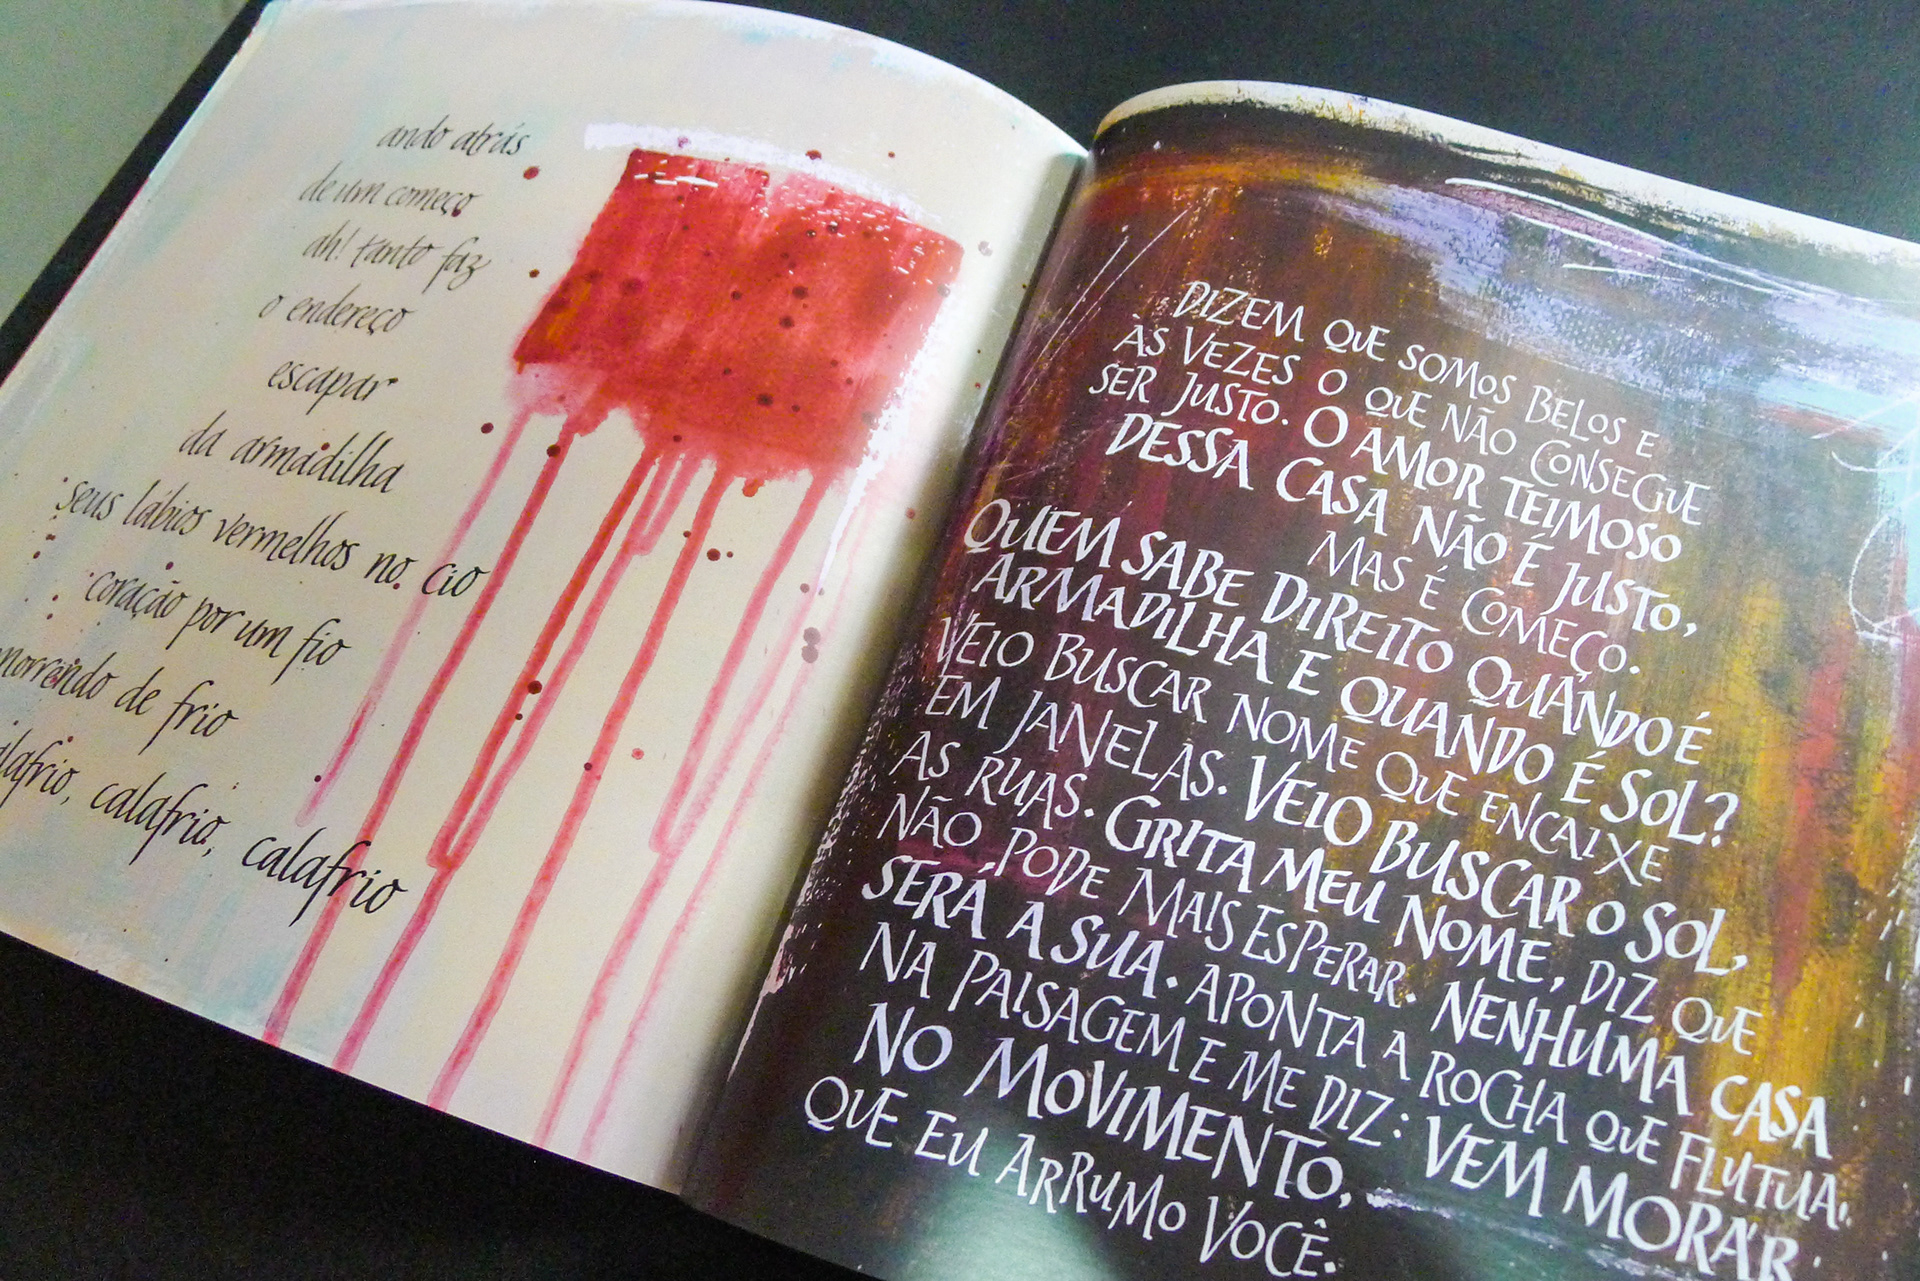 ando atrás
de um começo
ah! tanto faz
o endereço
escapar
da armadilha
seus lábios vermelhos no cio
coração por um fio
morrendo de frio
alafrio, calafrio, calafrio
DIZEM QUE SOMOS BELOS E
ÀS VEZES O QUE NÃO CONSEGUE
SER JUSTO. O AMOR TEIMOSO
DESSA CASA NÃO É JUSTO,
MAS É COMEÇO.
QUEM SABE DIREITO QUANDO É
ARMADILHA E QUANDO É SOL?
VEIO BUSCAR NOME QUE ENCAIXE
EM JANELAS. VEIO BUSCAR O SOL,
AS RUAS. GRITA MEU NOME, DIZ QUE
NÃO PODE MAIS ESPERAR. NENHUMA CASA
SERÁ A SUA. APONTA A ROCHA QUE FLUTUA
NA PAISAGEM E ME DIZ: VEM MORAR
NO MOVIMENTO,
QUE EU ARRUMO VOCÊ.